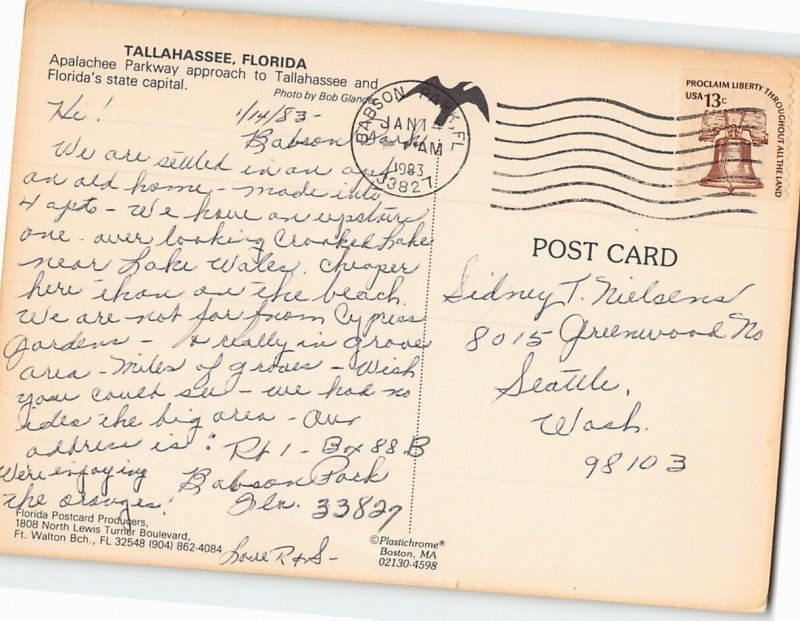 TALLAHASSEE, FLORIDA
Apalachee Parkway approach to Tallahassee and
Florida's state capital.
Photo by Bob Glander
Hi!
1/14/83-
Babson Park
We are settled in an apt
an old home - made into
4 apts - We have an upstairs
one - over looking Crooked Lake
near Lake Wales. Cheaper
here than on the beach.
We are not far from Cypress
Gardens - & really in grove
area - Miles of groves - Wish
you could see - we had no
idea the big area - Our
address is: Rt 1 - Box 88 B
Babson Park
Fla. 33827
We're enjoying
the oranges!
Love R & S -
Florida Postcard Producers,
1808 North Lewis Turner Boulevard,
Ft. Walton Bch., FL 32548 (904) 862-4084
©Plastichrome®
Boston, MA
02130-4598
BABSON PARK, FL
JAN 14
AM
1983
33827
PROCLAIM LIBERTY THROUGHOUT ALL THE LAND
USA 13c
POST CARD
Sidney T. Nielsens
8015 Greenwood No
Seattle,
Wash.
98103